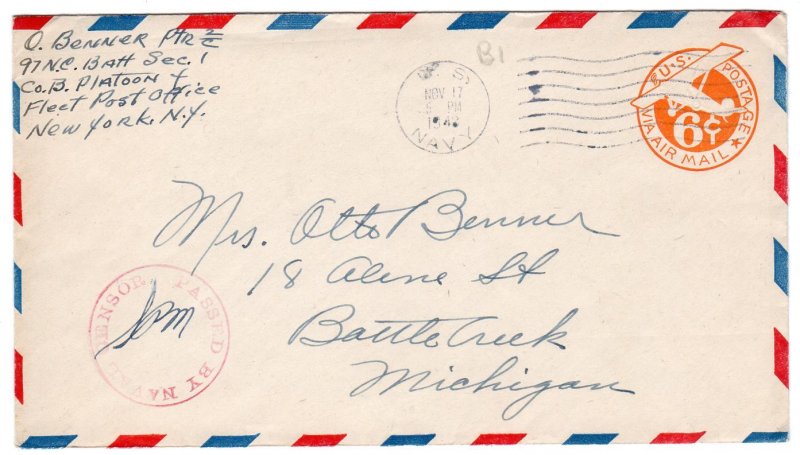 O. BENNER Ptr 2/c
97 N.C. Batt Sec. 1
Co. B. Platoon 4
Fleet Post Office
New York, N.Y.
B1
U. S.
NOV 17
PM
1943
NAVY
U.S. POSTAGE
6¢
VIA AIR MAIL
Mrs. Otto Benner
18 Aline St
Battle Creek
Michigan
PASSED BY NAVAL CENSOR